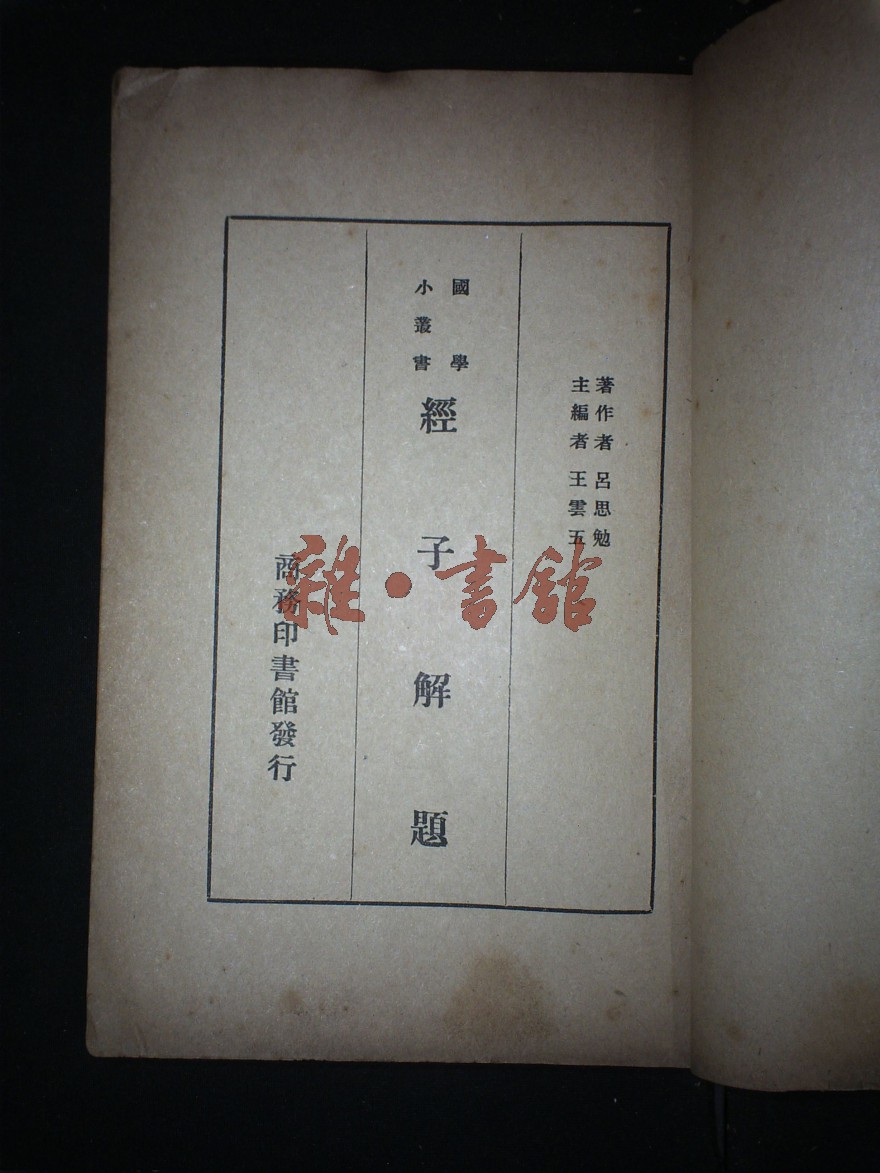 著作者 呂思勉
主編者 王雲五
國學
小叢書
經子解題
商務印書館發行
雜·書館